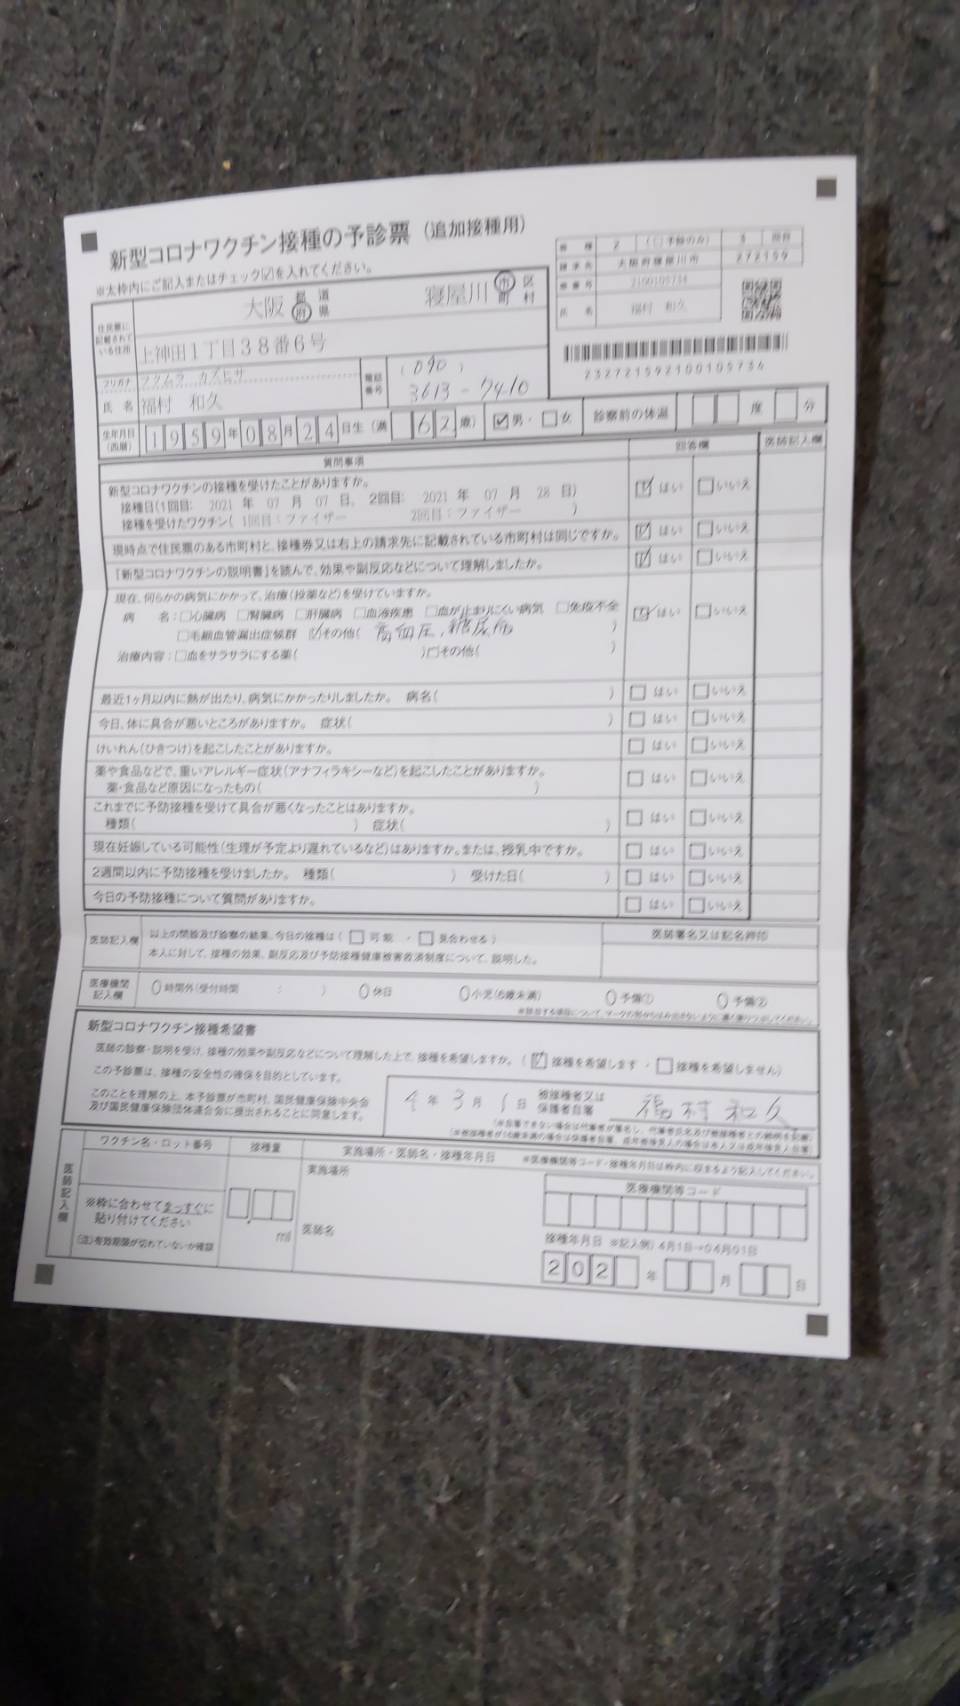 新型コロナワクチン接種の予診票（追加接種用）
※太枠内にご記入またはチェック☑を入れてください。
券種 2 （□予診のみ） 3 回目
請求先 大阪府寝屋川市 272159
券番号 2100105734
氏名 福村 和久
232721592100105734
住民票に記載されている住所 大阪 都道府県 寝屋川 市区町村
上神田1丁目38番6号
フリガナ フクムラ カズヒサ
氏名 福村 和久
電話番号 （090） 3613-7410
生年月日（西暦） 1959年08月24日生（満 62歳） ☑男・□女 診察前の体温 度 分
質問事項 回答欄 医師記入欄
新型コロナワクチンの接種を受けたことがありますか。
接種日(1回目: 2021 年 07 月 07 日、 2回目: 2021 年 07 月 28 日) ☑はい □いいえ
接種を受けたワクチン( 1回目：ファイザー 2回目：ファイザー )
現時点で住民票のある市町村と、接種券又は右上の請求先に記載されている市町村は同じですか。 ☑はい □いいえ
「新型コロナワクチンの説明書」を読んで、効果や副反応などについて理解しましたか。 ☑はい □いいえ
現在、何らかの病気にかかって、治療(投薬など)を受けていますか。
病名：□心臓病 □腎臓病 □肝臓病 □血液疾患 □血が止まりにくい病気 □免疫不全 ☑はい □いいえ
□毛細血管漏出症候群 ☑その他( 高血圧、糖尿病 )
治療内容：□血をサラサラにする薬( )□その他( )
最近1ヶ月以内に熱が出たり、病気にかかったりしましたか。 病名( ) □はい □いいえ
今日、体に具合が悪いところがありますか。 症状( ) □はい □いいえ
けいれん(ひきつけ)を起こしたことがありますか。 □はい □いいえ
薬や食品などで、重いアレルギー症状(アナフィラキシーなど)を起こしたことがありますか。
薬・食品など原因になったもの( ) □はい □いいえ
これまでに予防接種を受けて具合が悪くなったことはありますか。
種類( ) 症状( ) □はい □いいえ
現在妊娠している可能性(生理が予定より遅れているなど)はありますか。または、授乳中ですか。 □はい □いいえ
2週間以内に予防接種を受けましたか。 種類( ) 受けた日( ) □はい □いいえ
今日の予防接種について質問がありますか。 □はい □いいえ
医師記入欄 以上の問診及び診察の結果、今日の接種は（□可能・□見合わせる） 医師署名又は記名押印
本人に対して、接種の効果、副反応及び予防接種健康被害救済制度について、説明した。
医療機関記入欄 時間外(受付時間 : ) 休日 小児(6歳未満) 予備① 予備②
※該当する項目について、マークの枠からはみ出さないように濃く塗りつぶしてください。
新型コロナワクチン接種希望書
医師の診察・説明を受け、接種の効果や副反応などについて理解した上で、接種を希望しますか。（☑接種を希望します・□接種を希望しません）
この予診票は、接種の安全性の確保を目的としています。
このことを理解の上、本予診票が市町村、国民健康保険中央会
及び国民健康保険団体連合会に提出されることに同意します。
4 年 3 月 1 日 被接種者又は保護者自署 福村和久
(※自署できない場合は代筆者が署名し、代筆者氏名及び被接種者との続柄を記載)
(※被接種者が16歳未満の場合は保護者自署、成年被後見人の場合は本人又は成年後見人自署)
医師記入欄 ワクチン名・ロット番号 接種量 実施場所・医師名・接種年月日 ※医療機関等コード・接種年月日は枠内に収まるよう記入してください。
実施場所 医療機関等コード
※枠に合わせてまっすぐに
貼り付けてください
(注)有効期限が切れていないか確認
ml 医師名
接種年月日 ※記入例) 4月1日→04月01日
202 年 月 日